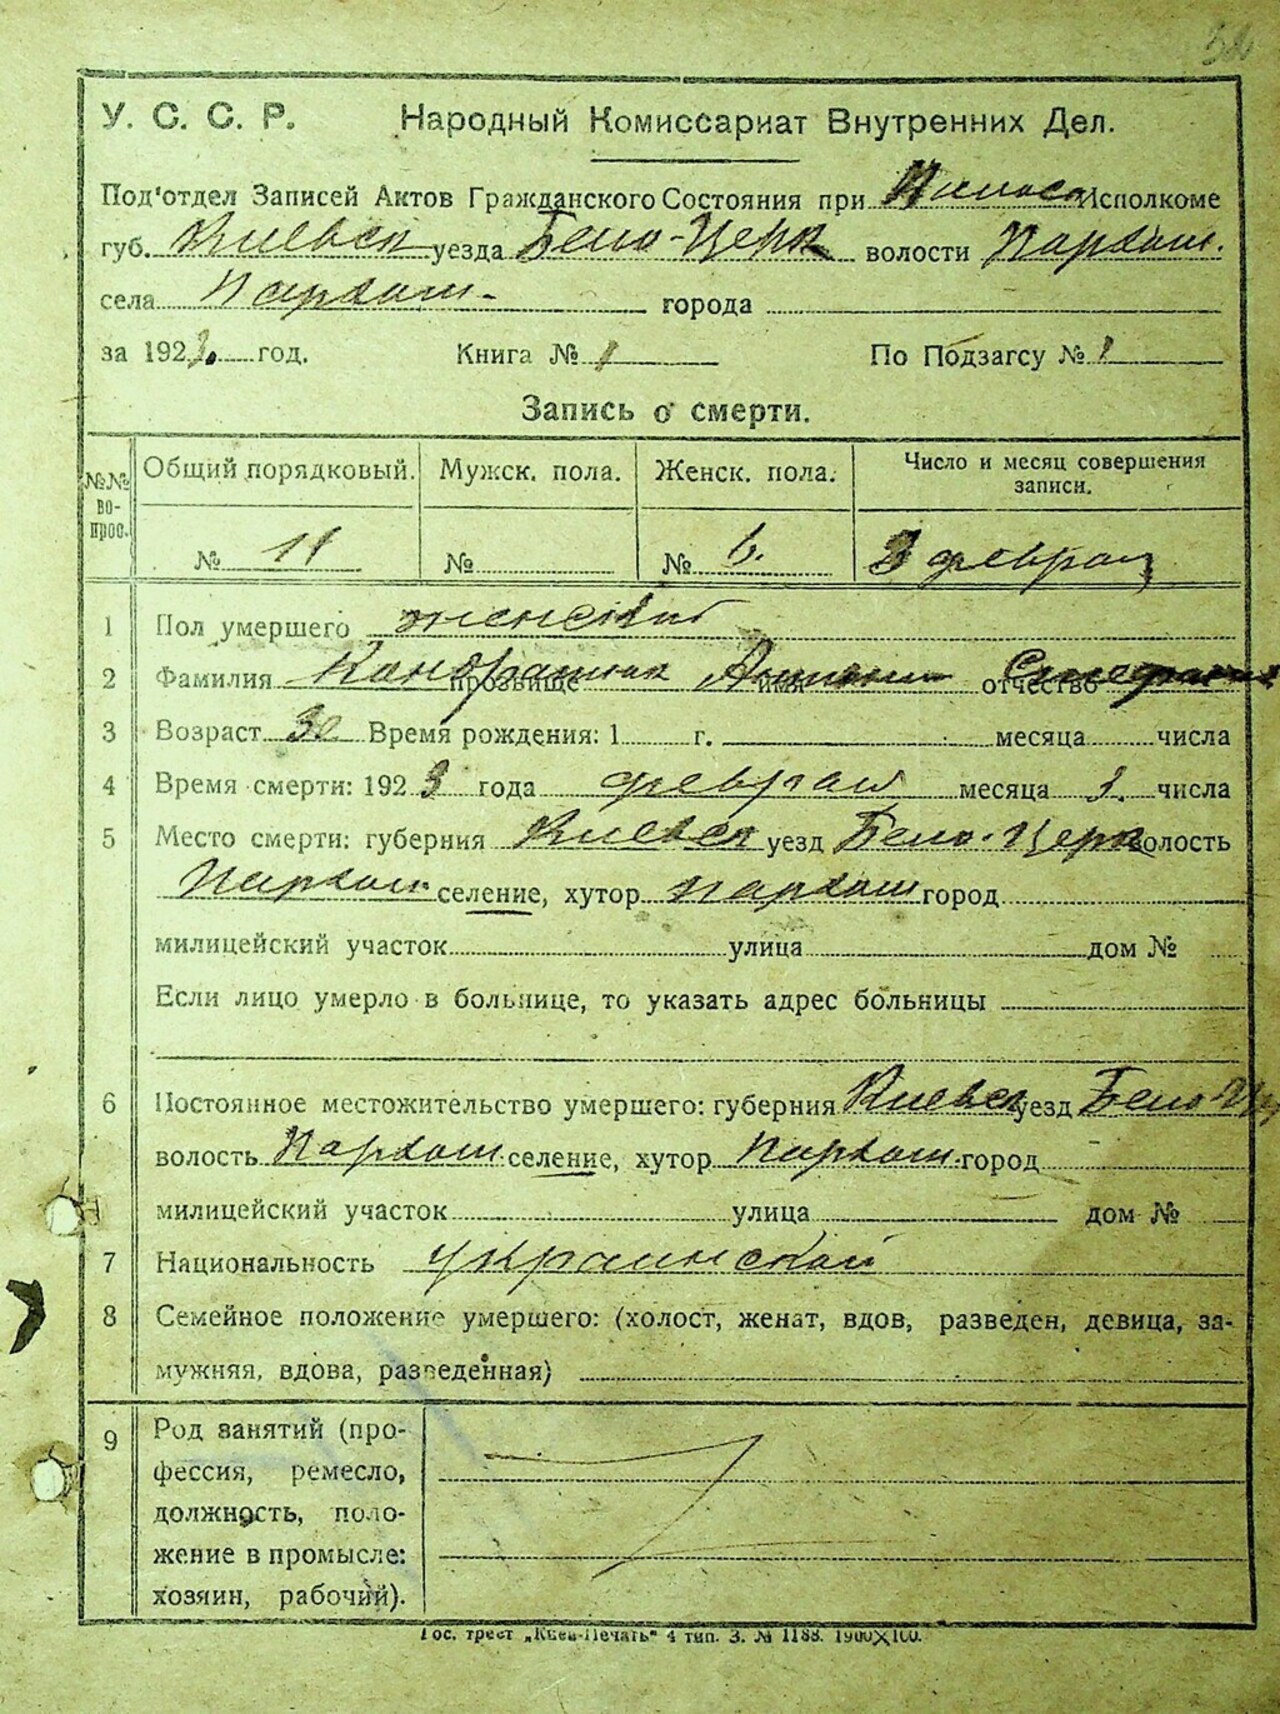 У. С. С. Р. Народный Комиссариат Внутренних Дел.
Под'отдел Записей Актов Гражданского Состояния при Исполкоме
губ. Киевск уезда Бело-Церк волости Пархом.
села Пархом. города
за 1923. год. Книга № 1 По Подзагсу № 1
Запись о смерти.
№№ вопрос. Общий порядковый. Мужск. пола. Женск. пола. Число и месяц совершения
записи.
№ 11 № № 6. 3 февраля
1 Пол умершего женский
2 Фамилия прозвище имя отчество
3 Возраст Время рождения: 1 г. месяца числа
4 Время смерти: 1923 года февраля месяца числа
5 Место смерти: губерния Киевск уезд Бело-Церк волость
Пархом. селение, хутор Пархом город
милицейский участок улица дом №
Если лицо умерло в больнице, то указать адрес больницы
6 Постоянное местожительство умершего: губерния Киевск уезд Бело-Це
волость Пархом. селение, хутор Пархом. город
милицейский участок улица дом №
7 Национальность украинской
8 Семейное положение умершего: (холост, женат, вдов, разведен, девица, за-
мужняя, вдова, разведенная)
9 Род занятий (про-
фессия, ремесло,
должность, поло-
жение в промысле:
хозяин, рабочий).
Гос. трест „Киев-Печать" 4 тип. З. № 1188. 1900X100.